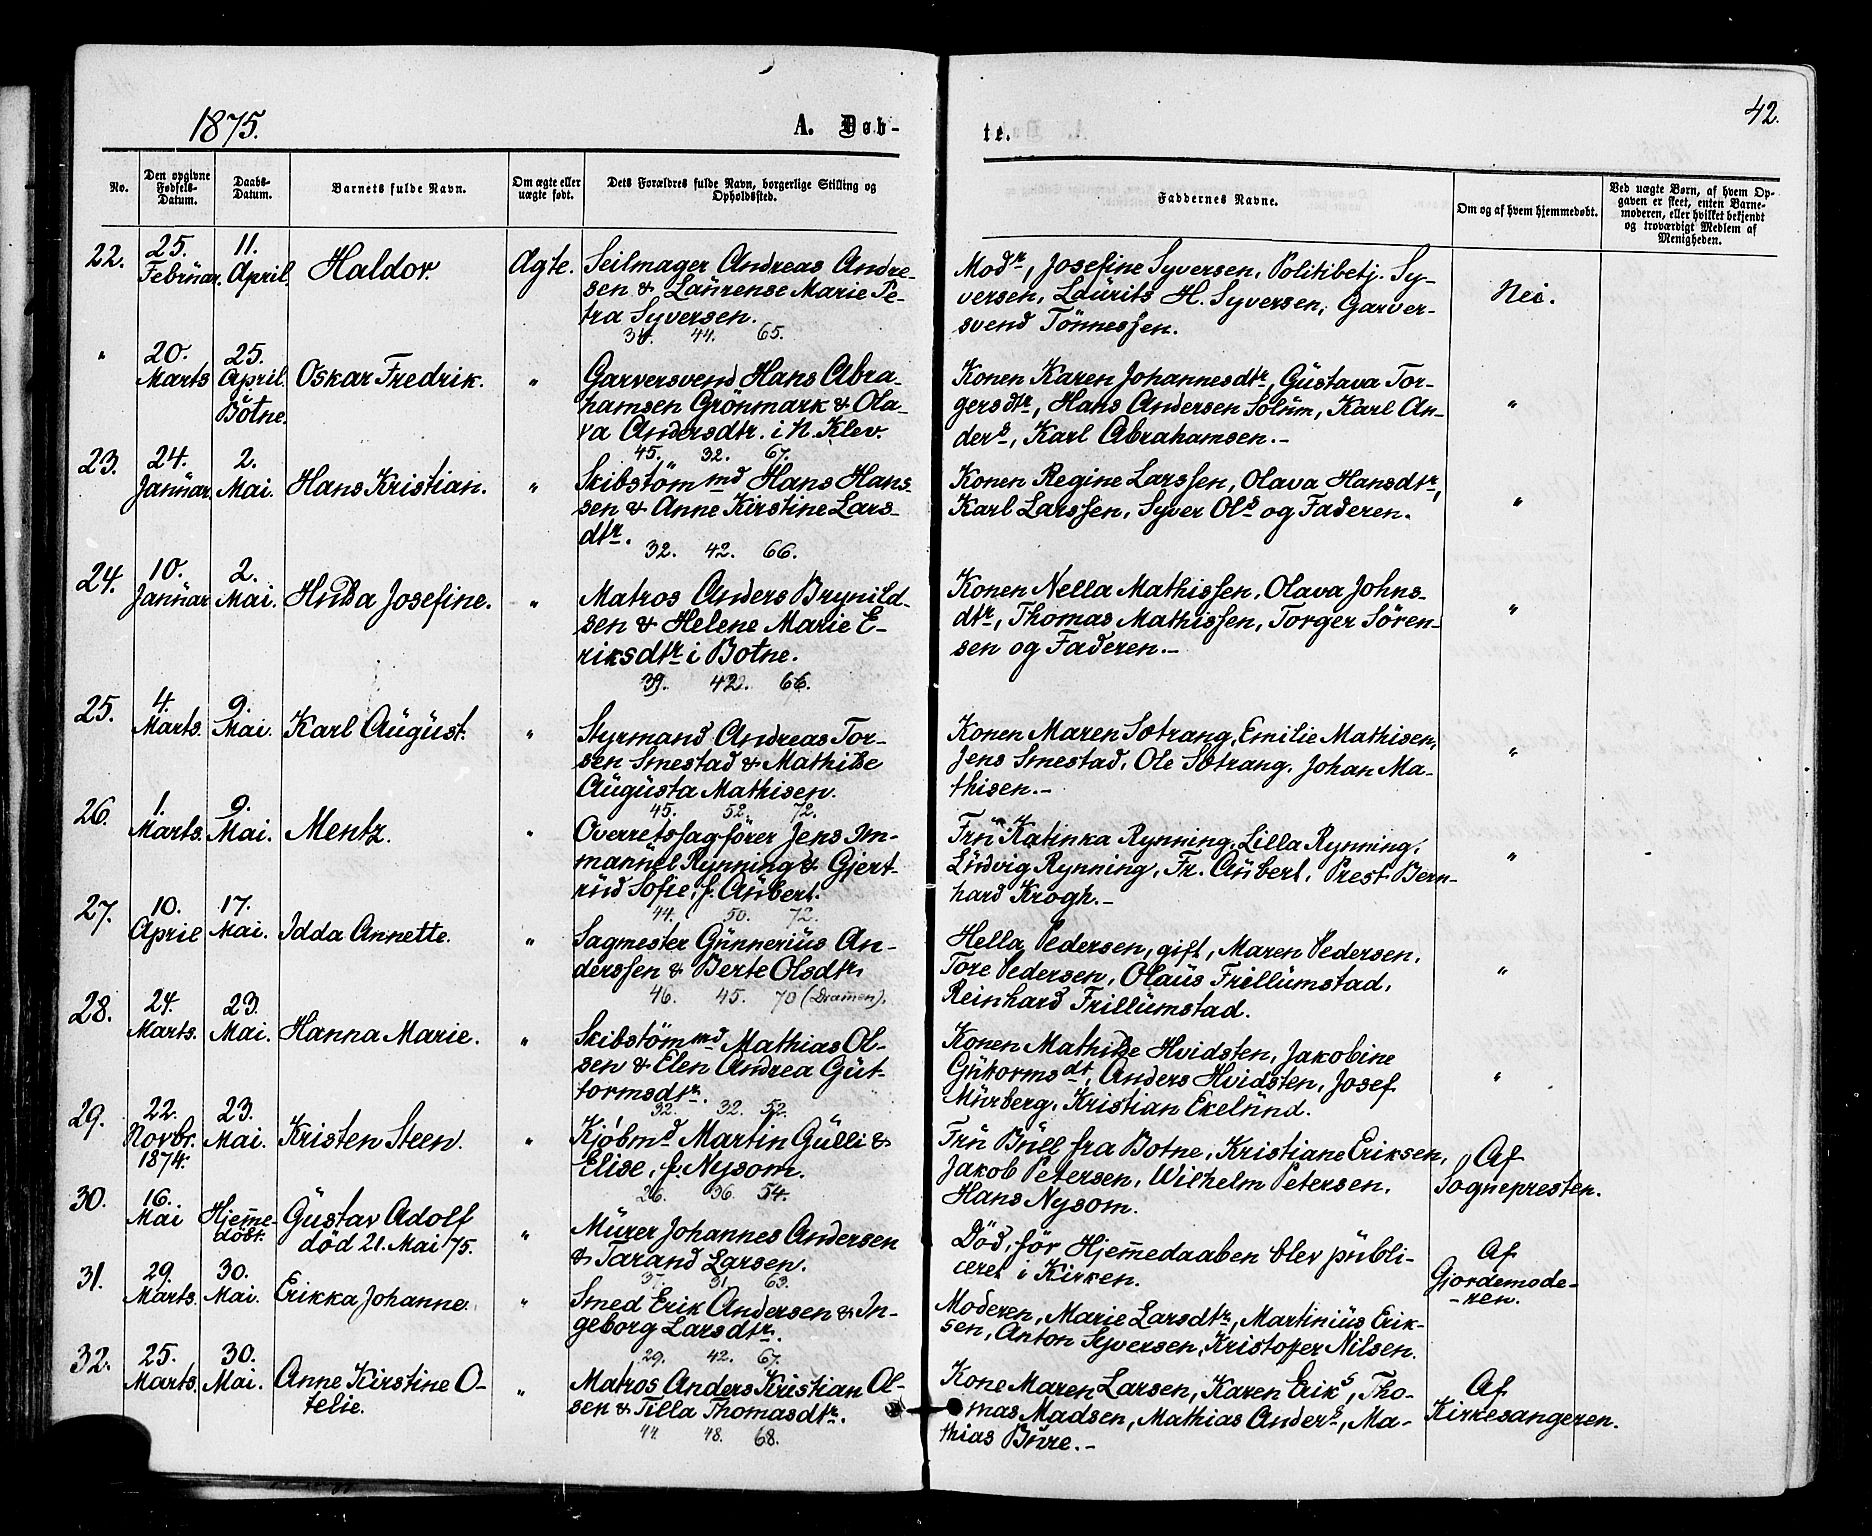 1875.
A. Døb-
te.
42.
No.
Den opgivne Fødsels-Datum.
Daabs-Datum.
Barnets fulde Navn.
Om ægte eller uægte født.
Dets Forældres fulde Navn, borgerlige Stilling og Opholdssted.
Faddernes Navne.
Om og af hvem hjemmedøbt.
Ved uægte Børn, af hvem Opgaven er skeet, enten Barnemoderen, eller hvilket bekjendt og troværdigt Medlem af Menigheden.
22. 25. Februar. 11. April. Haldor. Ægte.
Seilmager Andreas Andre-
sen & Laurense Marie Pe-
tra Syversen.
44. 65.
Modr, Josefine Syversen, Politibetj. Sy-
versen, Laurits H. Syversen, Garver-
svend Tönnessen.
Nei.
" 20. Marts 25. April. Botne. Oskar Fredrik. "
Garversvend Hans Abra-
hamsen Grönmark & Ola-
va Andersdtr. i N. Klev.
45. 32. 67.
Konen Karen Johannesdtr, Gustava Tor-
gersdtr, Hans Andersen Solum, Karl An-
ders, Karl Abrahamsen.-
"
23. 24. Januar. 2. Mai. Hans Kristian. "
Skibstömmd Hans Hans-
sen & Anne Kirstine Lars-
dtr.
32. 42. 66.
Konen Regine Larssen, Olava Hansdtr,
Karl Larssen, Syver Ols og Faderen.
"
24. 10. Januar 2. Mai. Hulda Josefine. "
Matros Anders Brynild-
sen & Helene Marie E-
riksdtr i Botne.
39. 42. 66.
Konen Nella Mathissen, Olava Johns-
dtr, Thomas Mathissen, Torger Sören-
sen og Faderen.-
"
25. 4. Marts. 9. Mai. Karl August. "
Styrmand Andreas Tor-
sen Smestad & Mathilde
Augusta Mathisen.
45. 52. 72.
Konen Maren Sætrang, Emilie Mathisen,
Jens Smestad, Ole Sætrang, Johan Ma-
thisen.-
"
26. 1. Marts. 9. Mai. Mentz. "
Overretssagförer Jens Im-
manuel Rynning & Gjert-
rud Sofie, f. Aubert.
44. 50. 72.
Fru Katinka Rynning, Lilla Rynning,
Ludvig Rynning, Fr. Aubert, Prest Bern-
hard Krogh.-
"
27. 10. April 17. Mai. Idda Annette. "
Sagmester Gunnerius An-
derssen & Berte Olsdtr.
46. 45. 70 (Dramen).
Hella Pedersen, gift, Maren Pedersen,
Tore Pedersen, Olaus Frillumstad,
Reinhard Frillumstad.
"
28. 24. Marts. 23. Mai. Hanna Marie. "
Skibstömmd Mathias Ol-
sen & Elen Andrea Gut-
tormsdtr.
32. 32. 52.
Konen Mathilde Hvidsten, Jakobine
Gutormsdt, Anders Hvidsten, Josef
Murberg, Kristian Ekelund.
"
29. 22. Novbr. 1874. 23. Mai. Kristen Steen. "
Kjöbmd Martin Gulli &
Elise, f. Nysom.
26. 36. 54.
Fru Bull fra Botne, Kristiane Eriksen,
Jakob Petersen, Wilhelm Petersen,
Hans Nysom.
Af
Sognepresten.
30. 16. Mai Hjemedöbt. Gustav Adolf
död 21. Mai 75. "
Murer Johannes Andersen
& Tarand Larsen.
37. 31. 63.
Död, för Hjemmedaaben blev publi-
ceret i Kirken.
Af
Gjordemode-
-ren.
31. 29. Marts. 30. Mai. Erikka Johanne. "
Smed Erik Andersen & In-
geborg Larsdtr.
29. 42. 67.
Moderen, Marie Larsdtr, Martinius Erik-
sen, Anton Syversen, Kristofer Nilsen.
32. 25. Marts. 30. Mai. Anne Kirstine O-
telie. "
Matros Anders Kristian Ol-
sen & Tilla Thomasdtr.
44. 48. 68.
Kone Maren Larsen, Karen Eriks, Tho-
mas Madsen, Mathias Anders, Ma-
thias Bure.-
Af
Kirkesangeren.